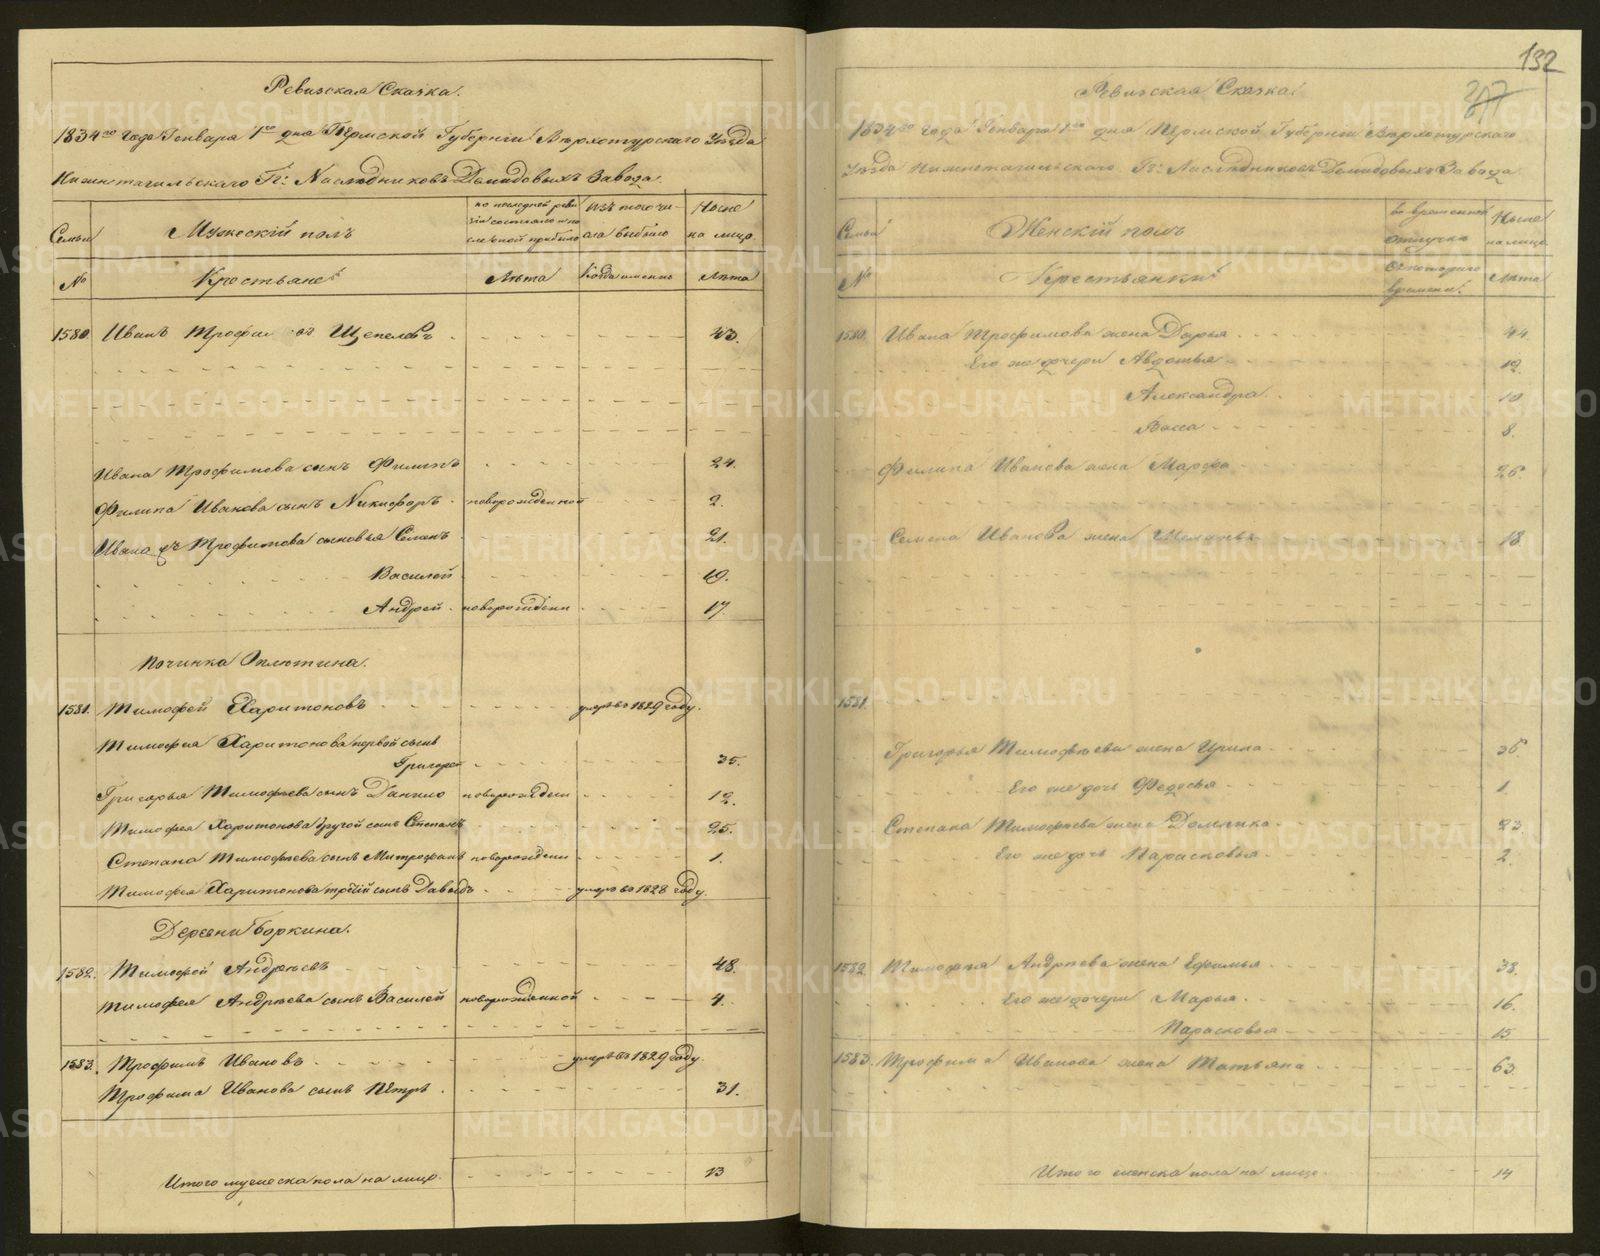 Ревизская Сказка.
1834го года Генваря 1го дня Пермской Губернiи Верхотурского Уезда
Нижнетагильского Гг: Наследниковъ Демидовыхъ Завода.
Семьи
Мужескiй полъ
по последней реви
зiи состояло и по
сле оной прибыло
изъ того чи-
сла выбыло
Ныне
на лицо
№
Крестьяне
Лѣта
Когда именно
Лѣта
1580. Иванъ Трофимовъ Щепелевъ 43.
Ивана Трофимова сынъ Филипъ 24.
Филипа Иванова сынъ Никифоръ новорожденной 2.
Ивана Трофимова сыновья Семенъ 21.
Василей 19.
Андрей новорожденн 17.
Починка
1581. Тимофей Харитоновъ умре въ 1829 году.
Тимофея Харитонова первой сынъ
Григорей 35.
Григорья Тимофеева сынъ Данило новорожденн 12.
Тимофея Харитонова другой сынъ Степанъ 25.
Степана Тимофеева сынъ Митрофанъ новорожденн 1.
Тимофея Харитонова третiй сынъ Давыдъ умре въ 1828 году.
Деревни Боркина.
1582. Тимофей Андреевъ 48.
Тимофея Андреева сынъ Василей новорожденной 4.
1583. Трофимъ Ивановъ умре въ 1829 году.
Трофима Иванова сынъ Петръ 31.
Итого мужеска пола на лицо 13
132
Ревизская Сказка
1834го года Генваря 1го дня Пермской Губернiи Верхотурского
Уезда Нижнетагильского Гг: Наследниковъ Демидовыхъ Завода
Семьи
Женскiй полъ
во временной
отлучке
Ныне
на лицо
№
Крестьянки
съ котораго
времени
Лѣта
1580. Ивана Трофимова жена Дарья 44.
Его же дочери Авдотья 12.
Александра 10
Васса 8.
Филипа Иванова жена Марфа 26.
Семена Иванова жена 18
1581.
Григорья Тимофеева жена Ирина 36
Его же дочь Федосья 1
Степана Тимофеева жена Домника 23
Его же дочь Парасковья 2.
1582. Тимофея Андреева жена Ефимья 38.
Его же дочери Марья 16.
Парасковья 15
1583. Трофима Иванова жена Татьяна 63.
Итого женска пола на лицо 14
METRIKI.GASO-URAL.RU